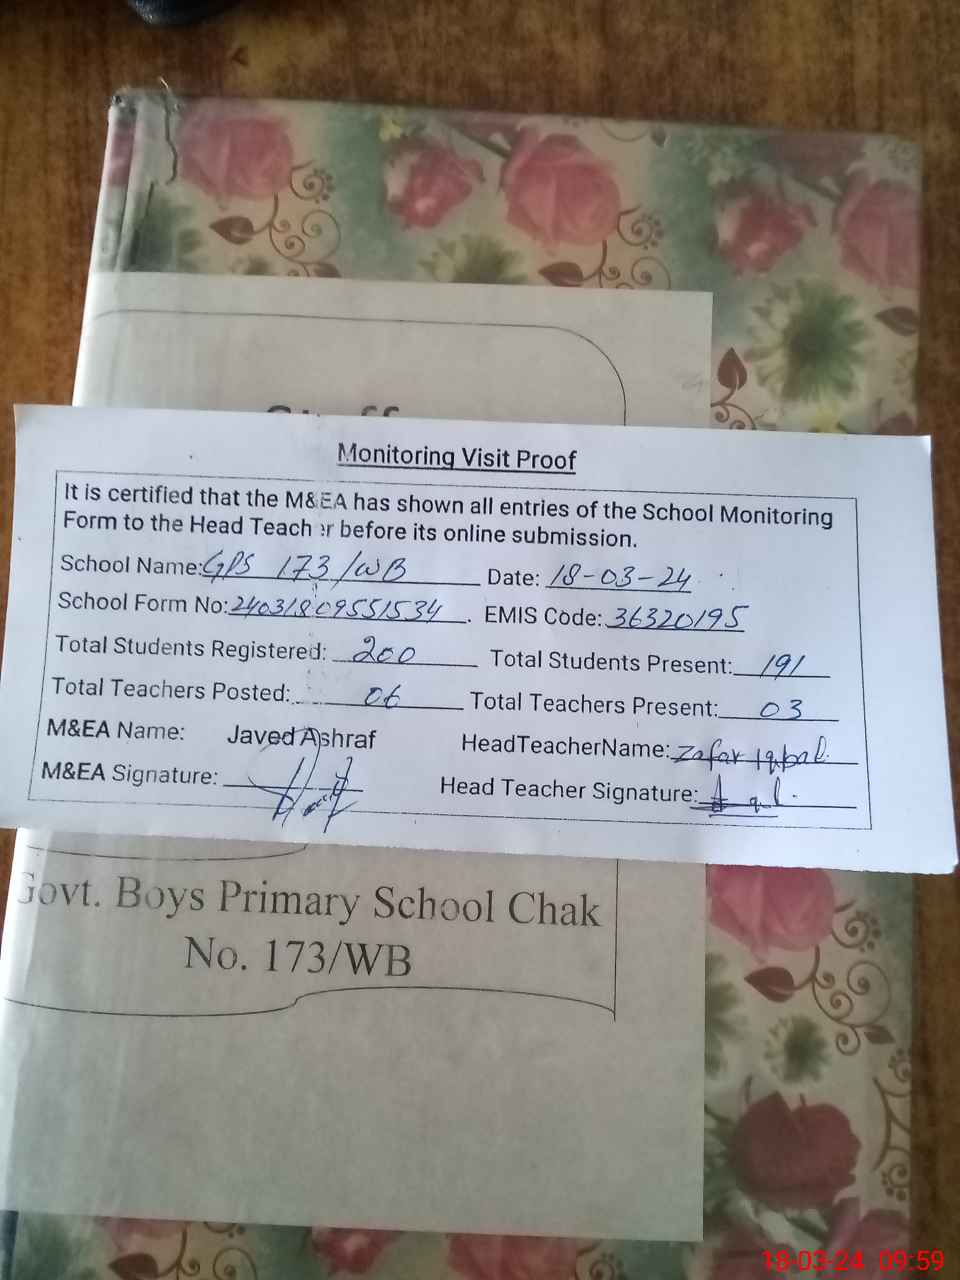 Monitoring Visit Proof
It is certified that the M&EA has shown all entries of the School Monitoring
Form to the Head Teacher before its online submission.
School Name: GPS 173/WB Date: 18-03-24
School Form No: 24031809551534. EMIS Code: 36320195
Total Students Registered: 200 Total Students Present: 191
Total Teachers Posted: 06 Total Teachers Present: 03
M&EA Name: Javed Ashraf HeadTeacherName: Zafar Iqbal
M&EA Signature: Head Teacher Signature:
Govt. Boys Primary School Chak
No. 173/WB
18-03-24 09:59